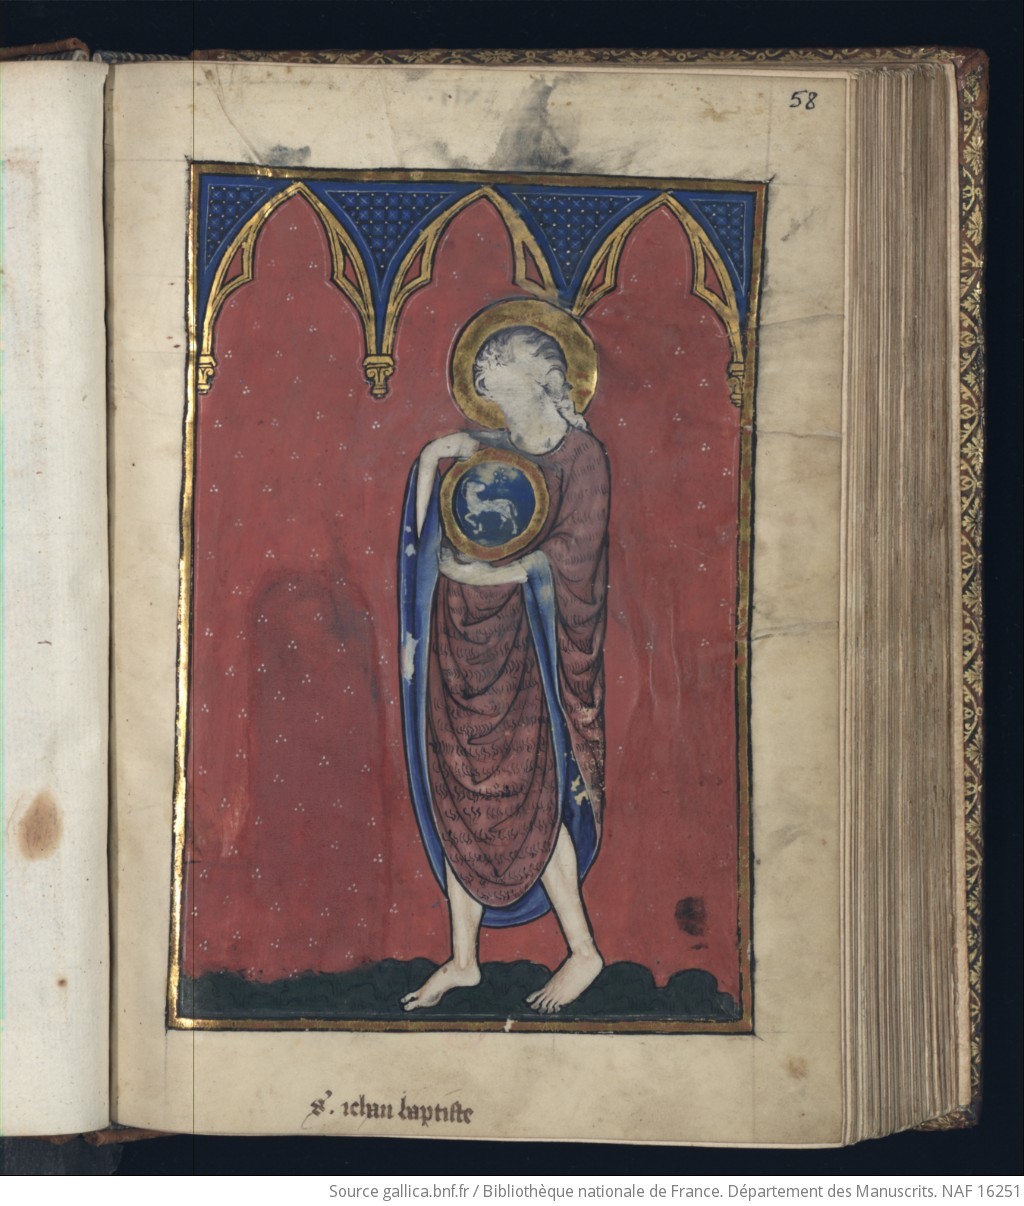 58
s'. iehan baptiste
Source gallica.bnf.fr / Bibliothèque nationale de France. Département des Manuscrits. NAF 16251